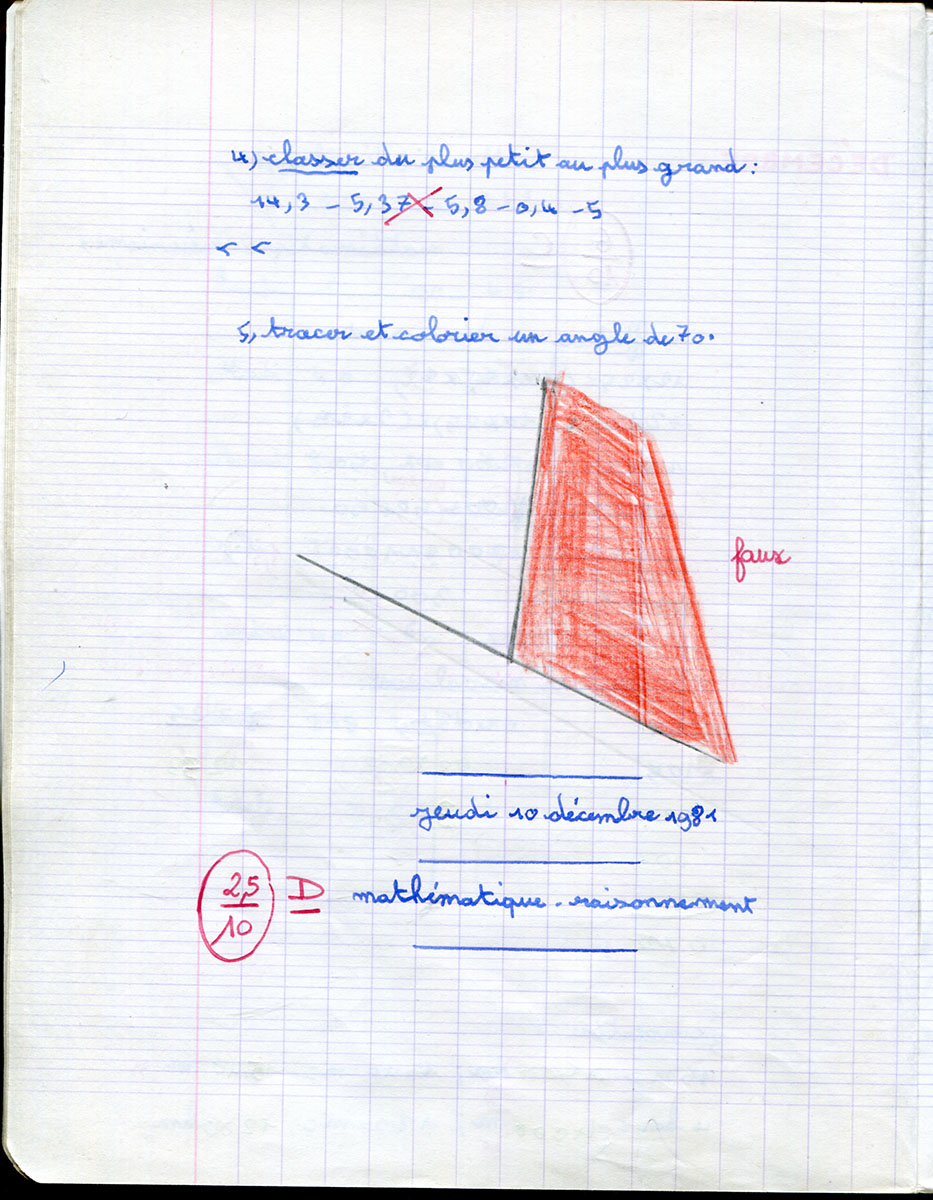 4) classer du plus petit au plus grand :
14,3 - 5,37 - 5,8 - 0,4 - 5
< <
5, tracer et colorier un angle de 70.
faux
jeudi 10 décembre 1981
2,5
10
D mathématique - raisonnement